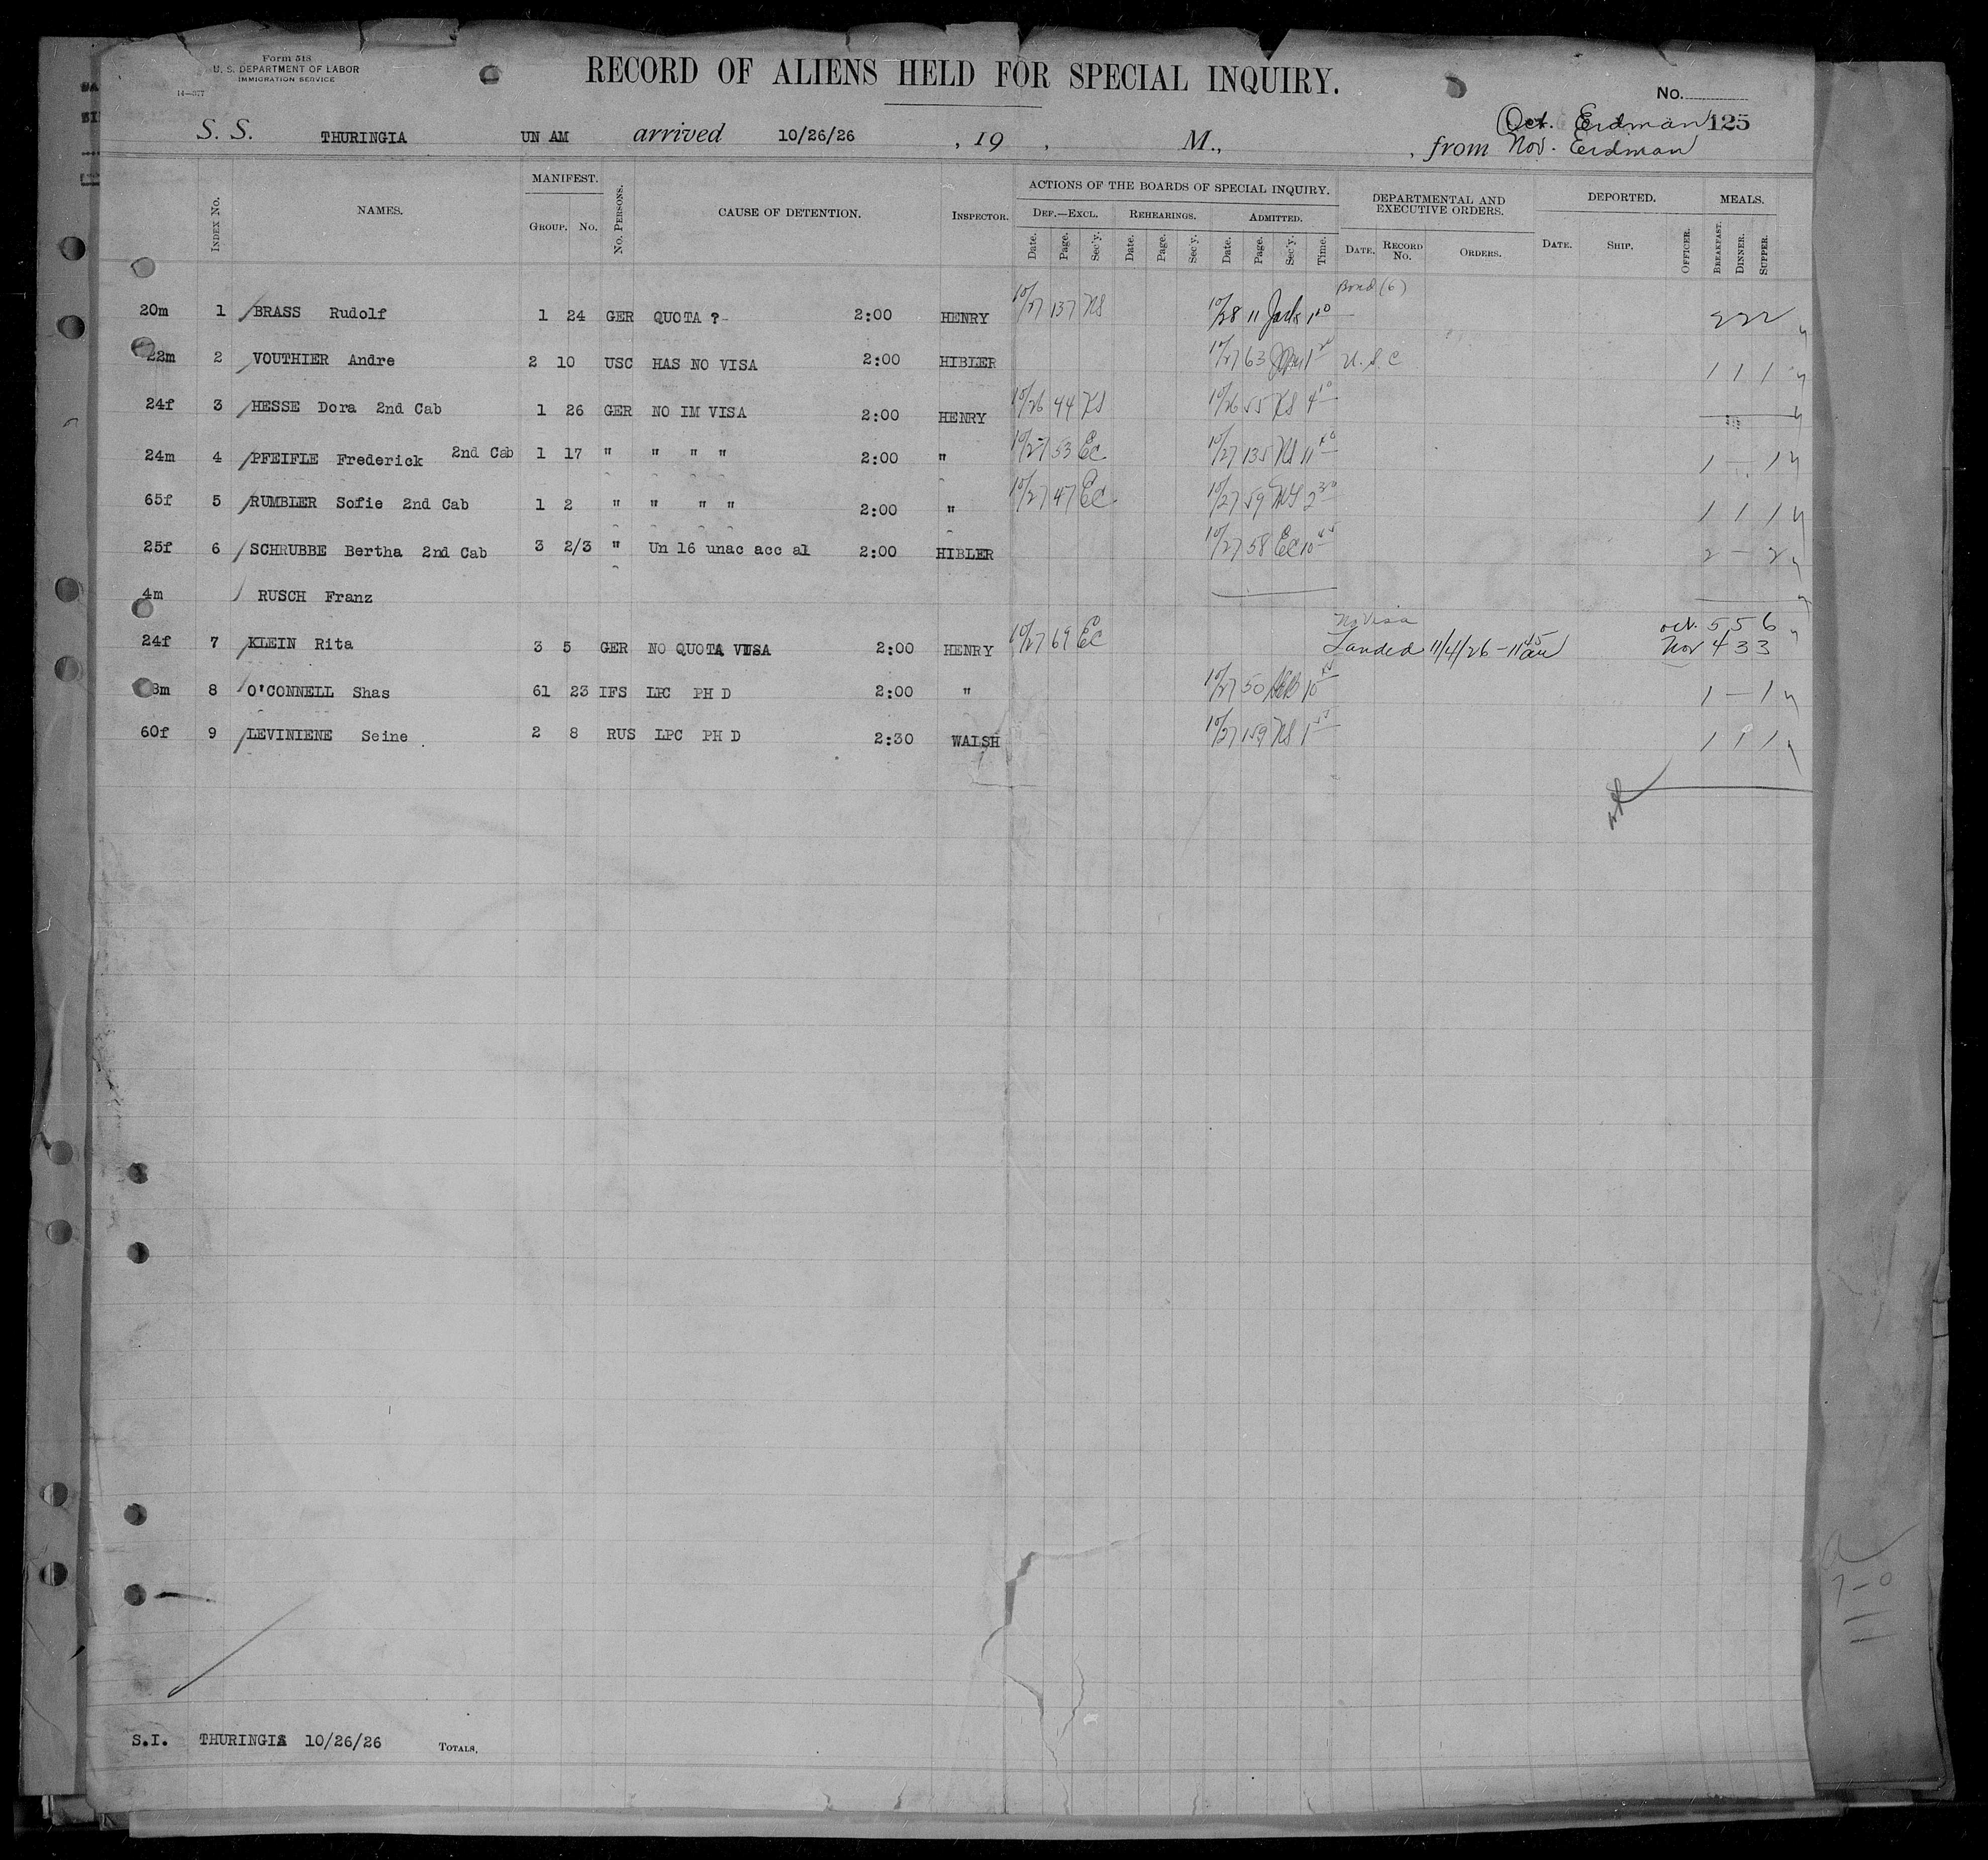 Form 518
U. S. DEPARTMENT OF LABOR
IMMIGRATION SERVICE
14—577
RECORD OF ALIENS HELD FOR SPECIAL INQUIRY.
No.
Oct. Erdman 125
S. S. THURINGIA UN AM arrived 10/26/26 , 19 , M., , from Nov. Erdman
INDEX No. NAMES. MANIFEST. GROUP. No. No. PERSONS. CAUSE OF DETENTION. INSPECTOR. ACTIONS OF THE BOARDS OF SPECIAL INQUIRY. DEPARTMENTAL AND EXECUTIVE ORDERS. DEPORTED. MEALS.
DEF.—EXCL. REHEARINGS. ADMITTED.
Date. Page. Sec'y. Date. Page. Sec'y. Date. Page. Sec'y. Time. DATE. RECORD No. ORDERS. DATE. SHIP. OFFICER. BREAKFAST. DINNER. SUPPER.
Bond (6)
20m 1 BRASS Rudolf 1 24 GER QUOTA ?- 2:00 HENRY 10/27 137 NS 10/28 11 2 2 2
22m 2 VOUTHIER Andre 2 10 USC HAS NO VISA 2:00 HIBLER 10/27 63 U.S.C 1 1 1
24f 3 HESSE Dora 2nd Cab 1 26 GER NO IM VISA 2:00 HENRY 10/26 44 10/26 55 4
24m 4 PFEIFLE Frederick 2nd Cab 1 17 " " " " 2:00 " 10/27 53 EC 10/27 135 NS 11 1 - 1
65f 5 RUMBLER Sofie 2nd Cab 1 2 " " " " 2:00 " 10/27 47 EC 10/27 59 2 30 1 1 1
25f 6 SCHRUBBE Bertha 2nd Cab 3 2/3 " Un 16 unac acc al 2:00 HIBLER 10/27 58 EC 10 2 - 2
4m RUSCH Franz
No Visa
24f 7 KLEIN Rita 3 5 GER NO QUOTA VISA 2:00 HENRY 10/27 69 EC Landed 11/4/26 - 11 45 AM Oct. 5 5 6
Nov 4 3 3
8m 8 O'CONNELL Shas 61 23 IFS LPC PH D 2:00 " 10/27 50 10 1 - 1
60f 9 LEVINIENE Seine 2 8 RUS LPC PH D 2:30 WALSH 10/27 159 NS 1 1 1 1
S.I. THURINGIA 10/26/26 TOTALS,